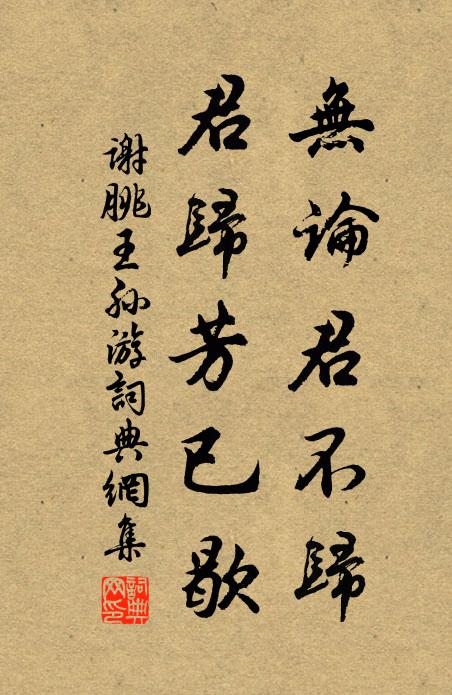 無論君不歸
君歸芳已歇
謝朓王孫游詞典網集
詞典
网印